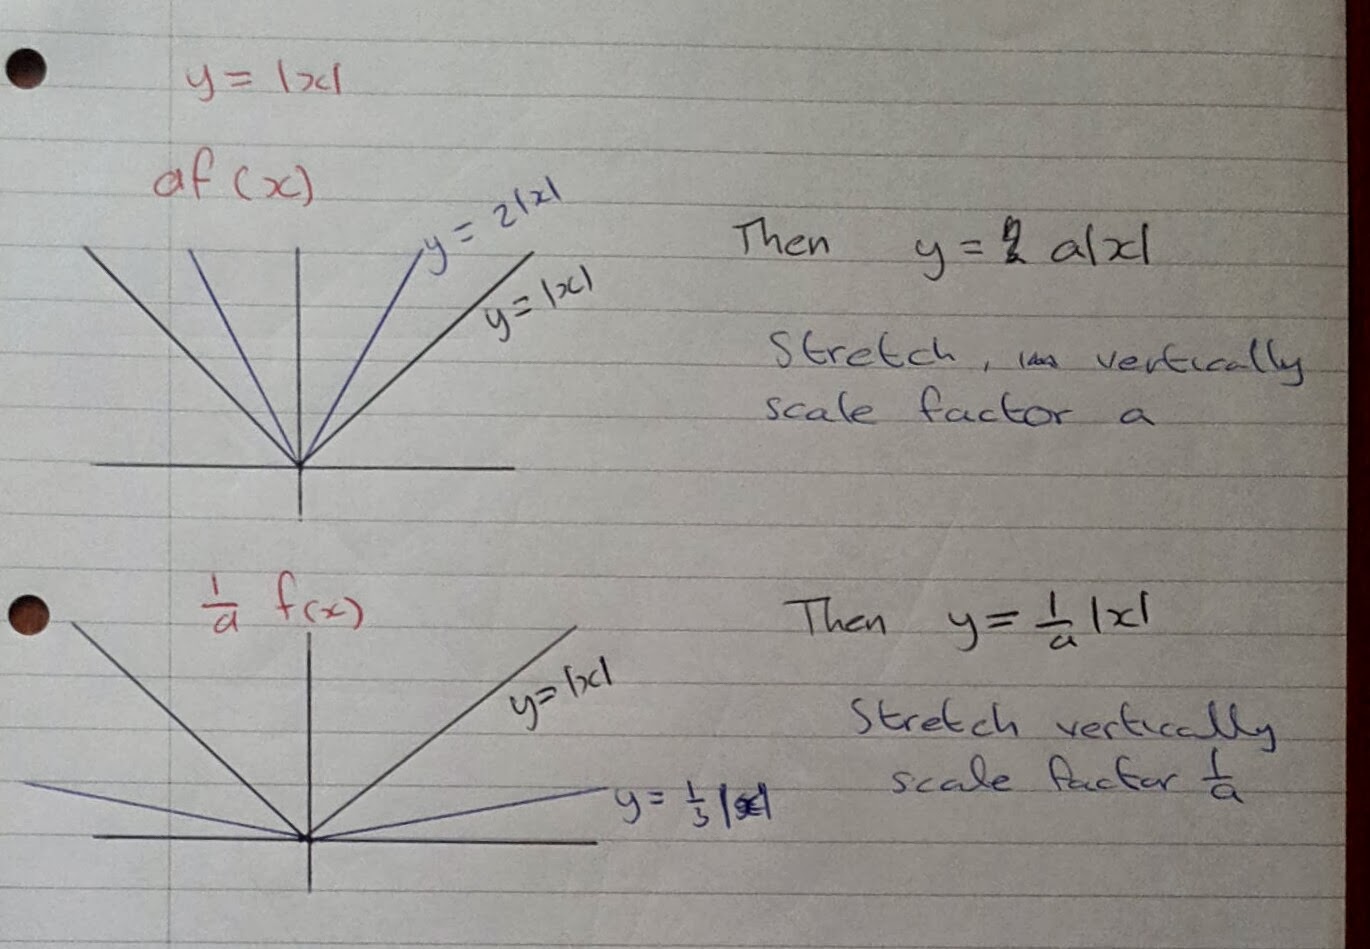 y = |x|
af(x)
y = 2|x|
y = |x|
Then y = a|x|
Stretch, vertically
scale factor a
1/a f(x)
Then y = 1/a |x|
y = |x|
Stretch vertically
scale factor 1/a
y = 1/3 |x|